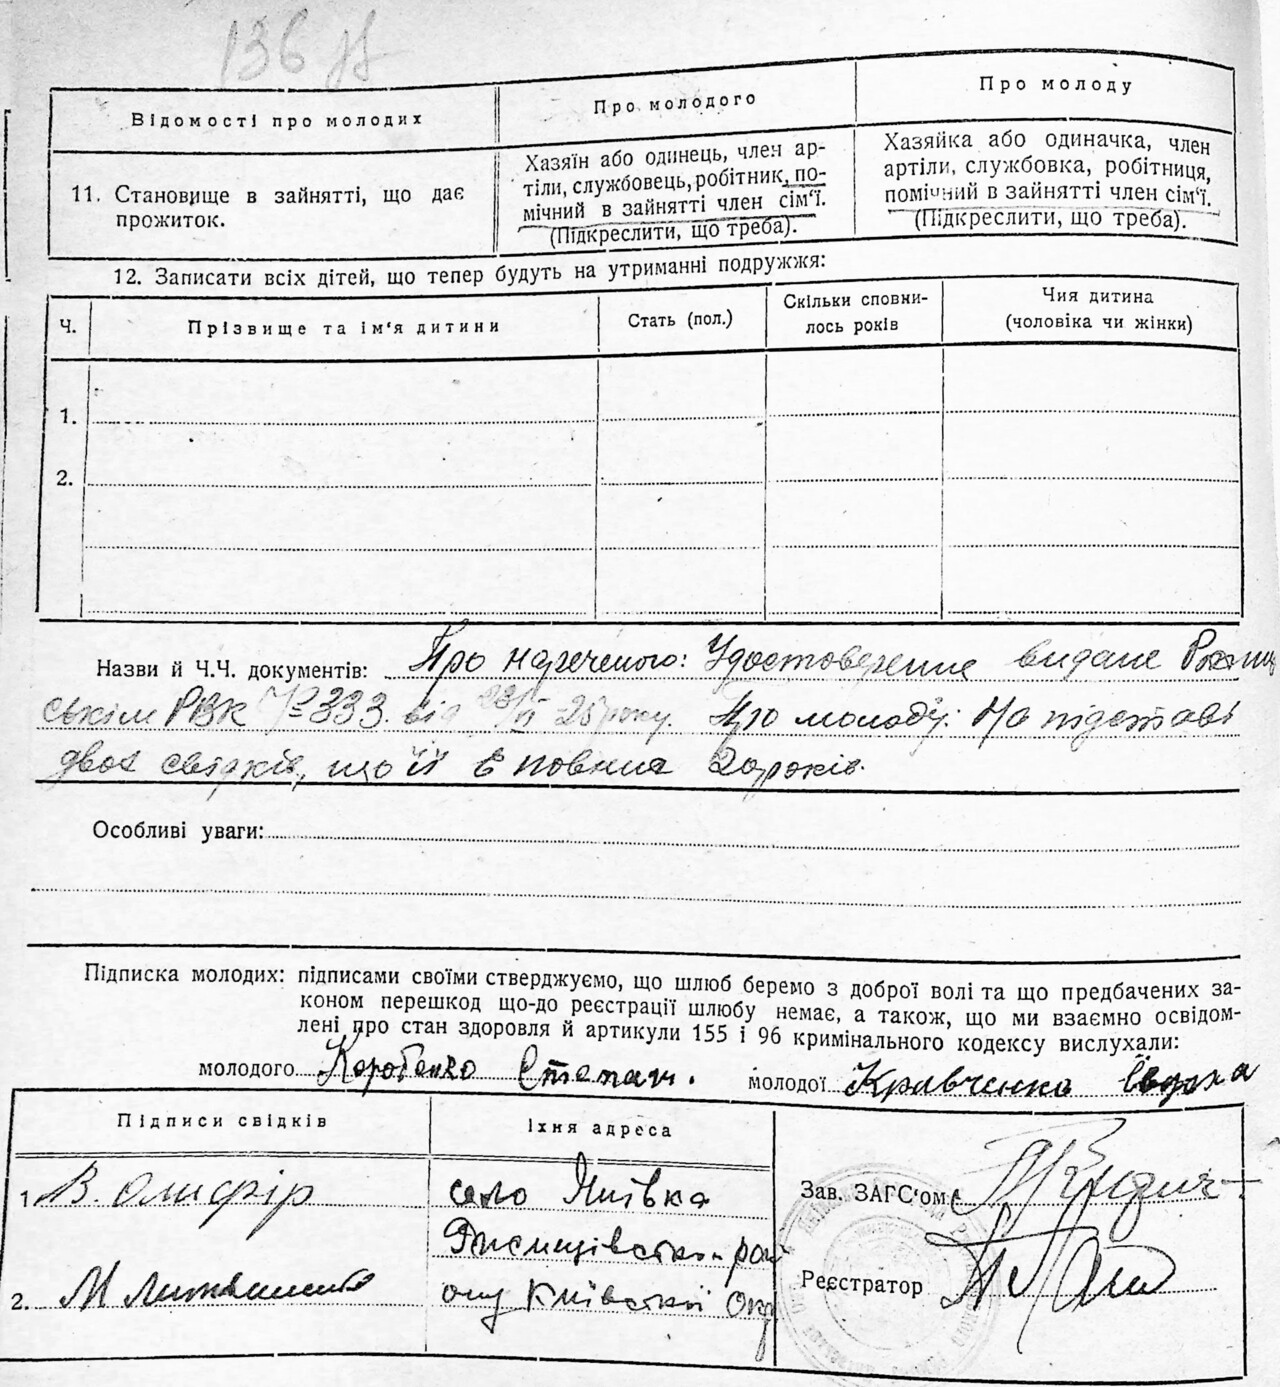 136
Відомості про молодих
Про молодого
Про молоду
11. Становище в зайнятті, що дає
прожиток.
Хазяїн або одинець, член ар-
тіли, службовець, робітник, по-
мічний в зайнятті член сім‘ї.
(Підкреслити, що треба).
Хазяйка або одиначка, член
артіли, службовка, робітниця,
помічний в зайнятті член сім‘ї.
(Підкреслити, що треба).
12. Записати всіх дітей, що тепер будуть на утриманні подружжя:
Ч.
Прізвище та ім‘я дитини
Стать (пол.)
Скільки сповни-
лось років
Чия дитина
(чоловіка чи жінки)
1.
2.
Назви й Ч.Ч. документів: Про нареченого: Удостоверение видане
ським РВК № 333 від 25 року. Про молоду: На підставі
двох свідків, що її є повних 20 років.
Особливі уваги:
Підписка молодих: підписами своїми стверджуємо, що шлюб беремо з доброї волі та що предбачених за-
коном перешкод що-до реєстрації шлюбу немає, а також, що ми взаємно освідом-
лені про стан здоровля й артикули 155 і 96 кримінального кодексу вислухали:
молодого Коробенко Степан. молодої Кравченко Євдоха
Підписи свідків
Їхня адреса
1 В. Олифір
село
району Київської Окр
2. М
Зав. ЗАГС‘ом
Реєстратор